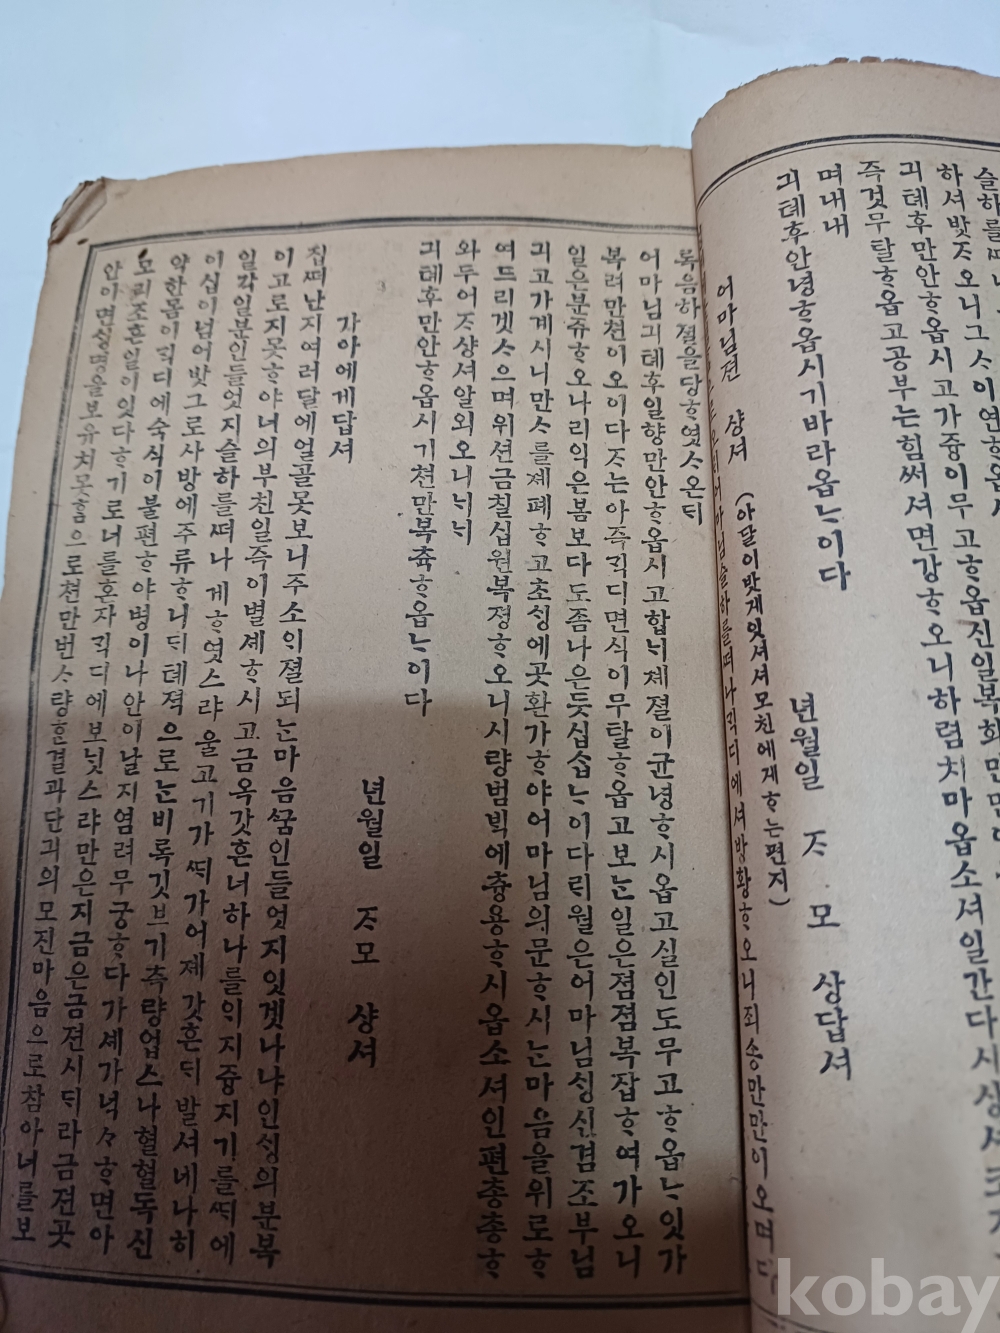 긔톄후만안ᄒᆞ옵시고가즁이무고ᄒᆞ옵진
즉것무탈ᄒᆞ옵고공부는힘써셔면강ᄒᆞ오니하렴치마옵소셔일간다시
며내내
긔톄후안녕ᄒᆞ옵시기바라옵ᄂᆞ이다
년월일 ᄌᆞ모 상답셔
어마님젼 샹셔 (아달이밧게잇셔셔모친에게ᄒᆞ는편지)
록음하졀을당ᄒᆞ엿ᄉᆞ온ᄃᆡ
어마님긔톄후일향만안ᄒᆞ옵시고합ᄂᆡ졔졀이균녕ᄒᆞ시옵고실인도무고ᄒᆞ옵ᄂᆞ잇가
복려만쳔이오이다ᄌᆞ는아즉ᄀᆡᆨ디면식이무탈ᄒᆞ옵고보ᄂᆞᆫ일은졈졈복잡ᄒᆞ여가오니
일은분쥬ᄒᆞ오나리익은봄보다도좀나은듯십습ᄂᆞ이다ᄅᆡ월은어마님ᄉᆡᆼ신겸조부님
긔고가계시니만ᄉᆞ를졔폐ᄒᆞ고초ᄉᆡᆼ에곳환가ᄒᆞ야어마님의문ᄒᆞ시ᄂᆞᆫ마음을위로ᄒᆞ
여드리겟ᄉᆞ으며위션금칠십원복졍ᄒᆞ오니시량범ᄇᆡᆨ에츙용ᄒᆞ시옵소셔인편총총ᄒᆞ
와두어ᄌᆞ샹셔알외오니ᄂᆡᄂᆡ
긔톄후만안ᄒᆞ옵시기쳔만복츅ᄒᆞ옵ᄂᆞ이다
년월일 ᄌᆞ모 샹셔
가아에게답셔
집ᄯᅥ난지여러달에얼골못보니주소의졀되ᄂᆞᆫ마음ᄭᅮᆷ인들엇지잇겟나냐인ᄉᆡᆼ의분복
이고로지못ᄒᆞ야너의부친일즉이별셰ᄒᆞ시고금옥갓흔너하나를의지즁지기를ᄯᅢ에
일각일분인들엇지슬하를ᄯᅥ나게ᄒᆞ엿스랴울고기가
이십이넘어밧그로사방에주류ᄒᆞ니ᄃᆡ톄젹으로ᄂᆞᆫ비록깃브기측량업스나혈혈독신
약한몸이ᄀᆡᆨ디에숙식이불편ᄒᆞ야병이나안이날지염려무궁ᄒᆞ다가셰가넉넉ᄒᆞ면아
모리조흔일이잇다ᄒᆞ기로너를혼자ᄀᆡᆨ디에보닛스랴만은지금은금젼시ᄃᆡ라금젼곳
안이면ᄉᆡᆼ명을보유치못ᄒᆞᆷ으로쳔만번ᄉᆞ량ᄒᆞᆫ결과단긔의모진마음으로참아너를보
kobay